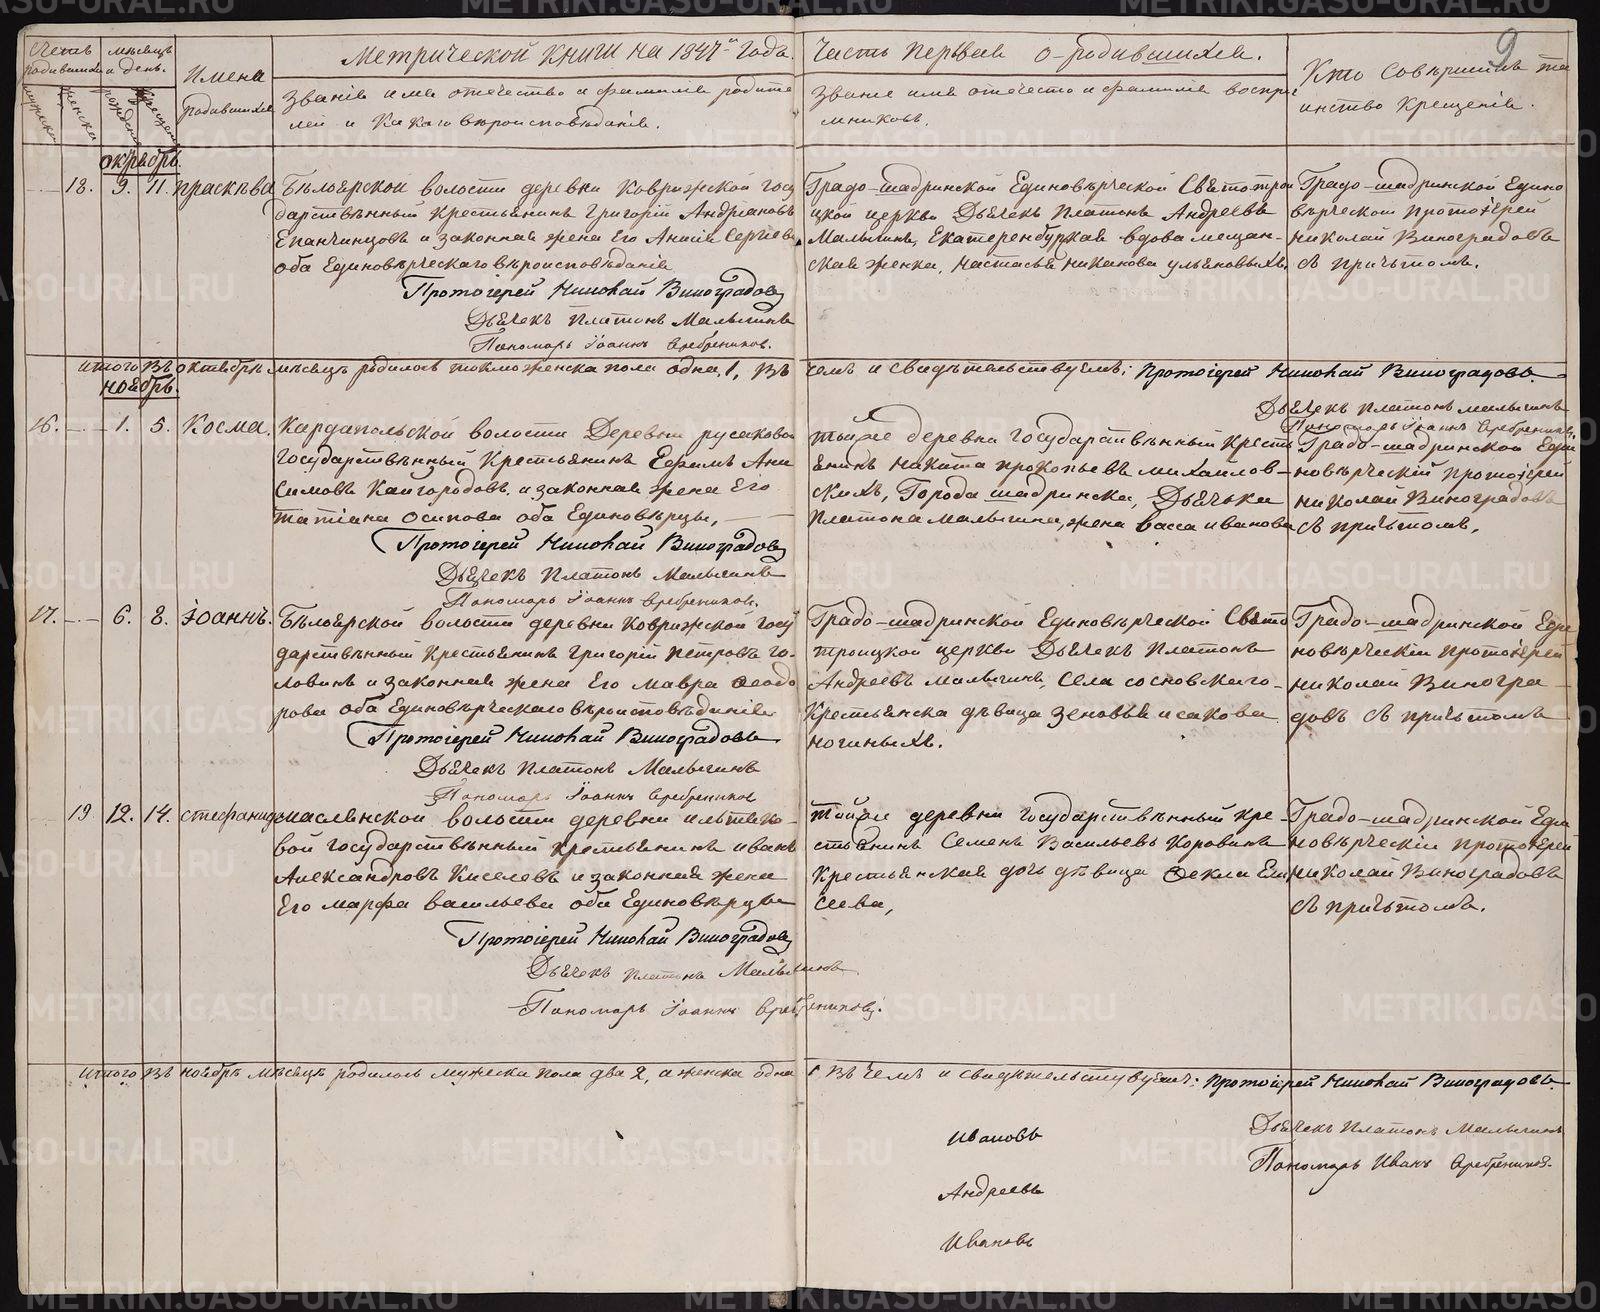 9
Счетъ родившихся
мѣсяцъ и день.
Имена родившихся
Метрической книги на 1847й годъ.
Часть первая о родившихся.
Кто совершилъ та
инство крещенія.
мужска
женска
рожденія
крещенія
Званіе имя отечество и фамилія родите
лей и какаго вѣроисповѣданія.
Званіе имя отечество и фамилія воспри
мниковъ.
октябрь.
18. 9. 11. праскѣва
Бѣлоярской волости деревни Коврижской госу
дарственный крестьянинъ Григорій Андріановъ
Епанчинцовъ и законная жена его Анисія Сергѣева
оба Единовѣрческаго вѣроисповѣданія
Протоіерей Николай Виноградовъ
Дьячекъ Платонъ Малыгинъ
Пономарь Іоаннъ Серебрениковъ.
Градо-шадринской Единовѣрческой Святотрои
цкой церкви Дьячекъ Платонъ Андреевъ
Малыгинъ, Екатеренбуркая вдова мещан-
ская женка, Настасья Никанова ульяновыхъ.
Градо-шадринской Едино
вѣрческой протоіерей
Николай Виноградовъ
съ причьтомъ.
итого въ октябрѣ мѣсяцѣ родилось токмо женска пола одна, 1, въ
чемъ и свидѣтельствуемъ: Протоіерей Николай Виноградовъ
Дьячекъ Платонъ Малыгинъ
Пономарь Іоаннъ Серебрениковъ.
ноябрь.
16. — 1. 5. Косма.
Кардапольской волости Деревни русаковой
государственный крестьянинъ Ефимъ Ани
симовъ Кайгородовъ, и законная жена Его
татіана Осипова оба Единовѣрцы,
Протоіерей Николай Виноградовъ
Дьячекъ Платонъ Малыгинъ
Пономарь Іоаннъ Серебрениковъ.
тойже деревни государственный кресть
янинъ Никита прокопьевъ михаилов-
скихъ, Города шадринска, Дьячька
платона малыгина, жена васса иванова
Градо-шадринской Еди
новѣрческій протоіерей
Николай Виноградовъ
съ причьтомъ,
17. — 6. 8. Іоаннъ.
Бѣлоярской волости деревни Коврижской госу
дарственный крестьянинъ Григорій петровъ го-
ловинъ и законная жена Его мавра Ѳеодо
рова оба Единовѣрческаго вѣроисповѣданія
Протоіерей Николай Виноградовъ
Дьячекъ Платонъ Малыгинъ
Пономарь Іоаннъ Серебрениковъ
Градо-шадринской Единовѣрческой Свято
троицкой церкви Дьячекъ Платонъ
Андреевъ малыгинъ, Села сосновскаго-
Крестьянска дѣвица зеновья исакова
ногиныхъ.
Градо-шадринской Еди
новѣрческій протоіерей
николай Виногра
довъ съ причьтомъ
19 12. 14. стефанида
маслянской волости деревни ильтико-
вой государственный крестьянинъ иванъ
Александровъ Киселевъ и законная жена
Его марфа васильева оба Единовѣрцы
Протоіерей Николай Виноградовъ
Дьячекъ Платонъ Малыгинъ
Пономарь Іоаннъ Серебрениковъ.
тойже деревни государственный кре-
стьянинъ Семенъ Васильевъ Коровинъ
Крестьянская дочь дѣвица Ѳекла Ели
сеева,
Градо-шадринской Еди
новѣрческій протоіерей
николай Виноградовъ
съ причьтомъ.
итого въ ноябрѣ мѣсяцѣ родилось мужеска пола два 2, а женска одна
1 въ чемъ и свидѣтельствуемъ: Протоіерей Николай Виноградовъ.
Дьячекъ Платонъ Малыгинъ
Пономарь Иванъ Серебрениковъ.
Ивановъ
Андреевъ
Ивановъ
METRIKI.GASO-URAL.RU